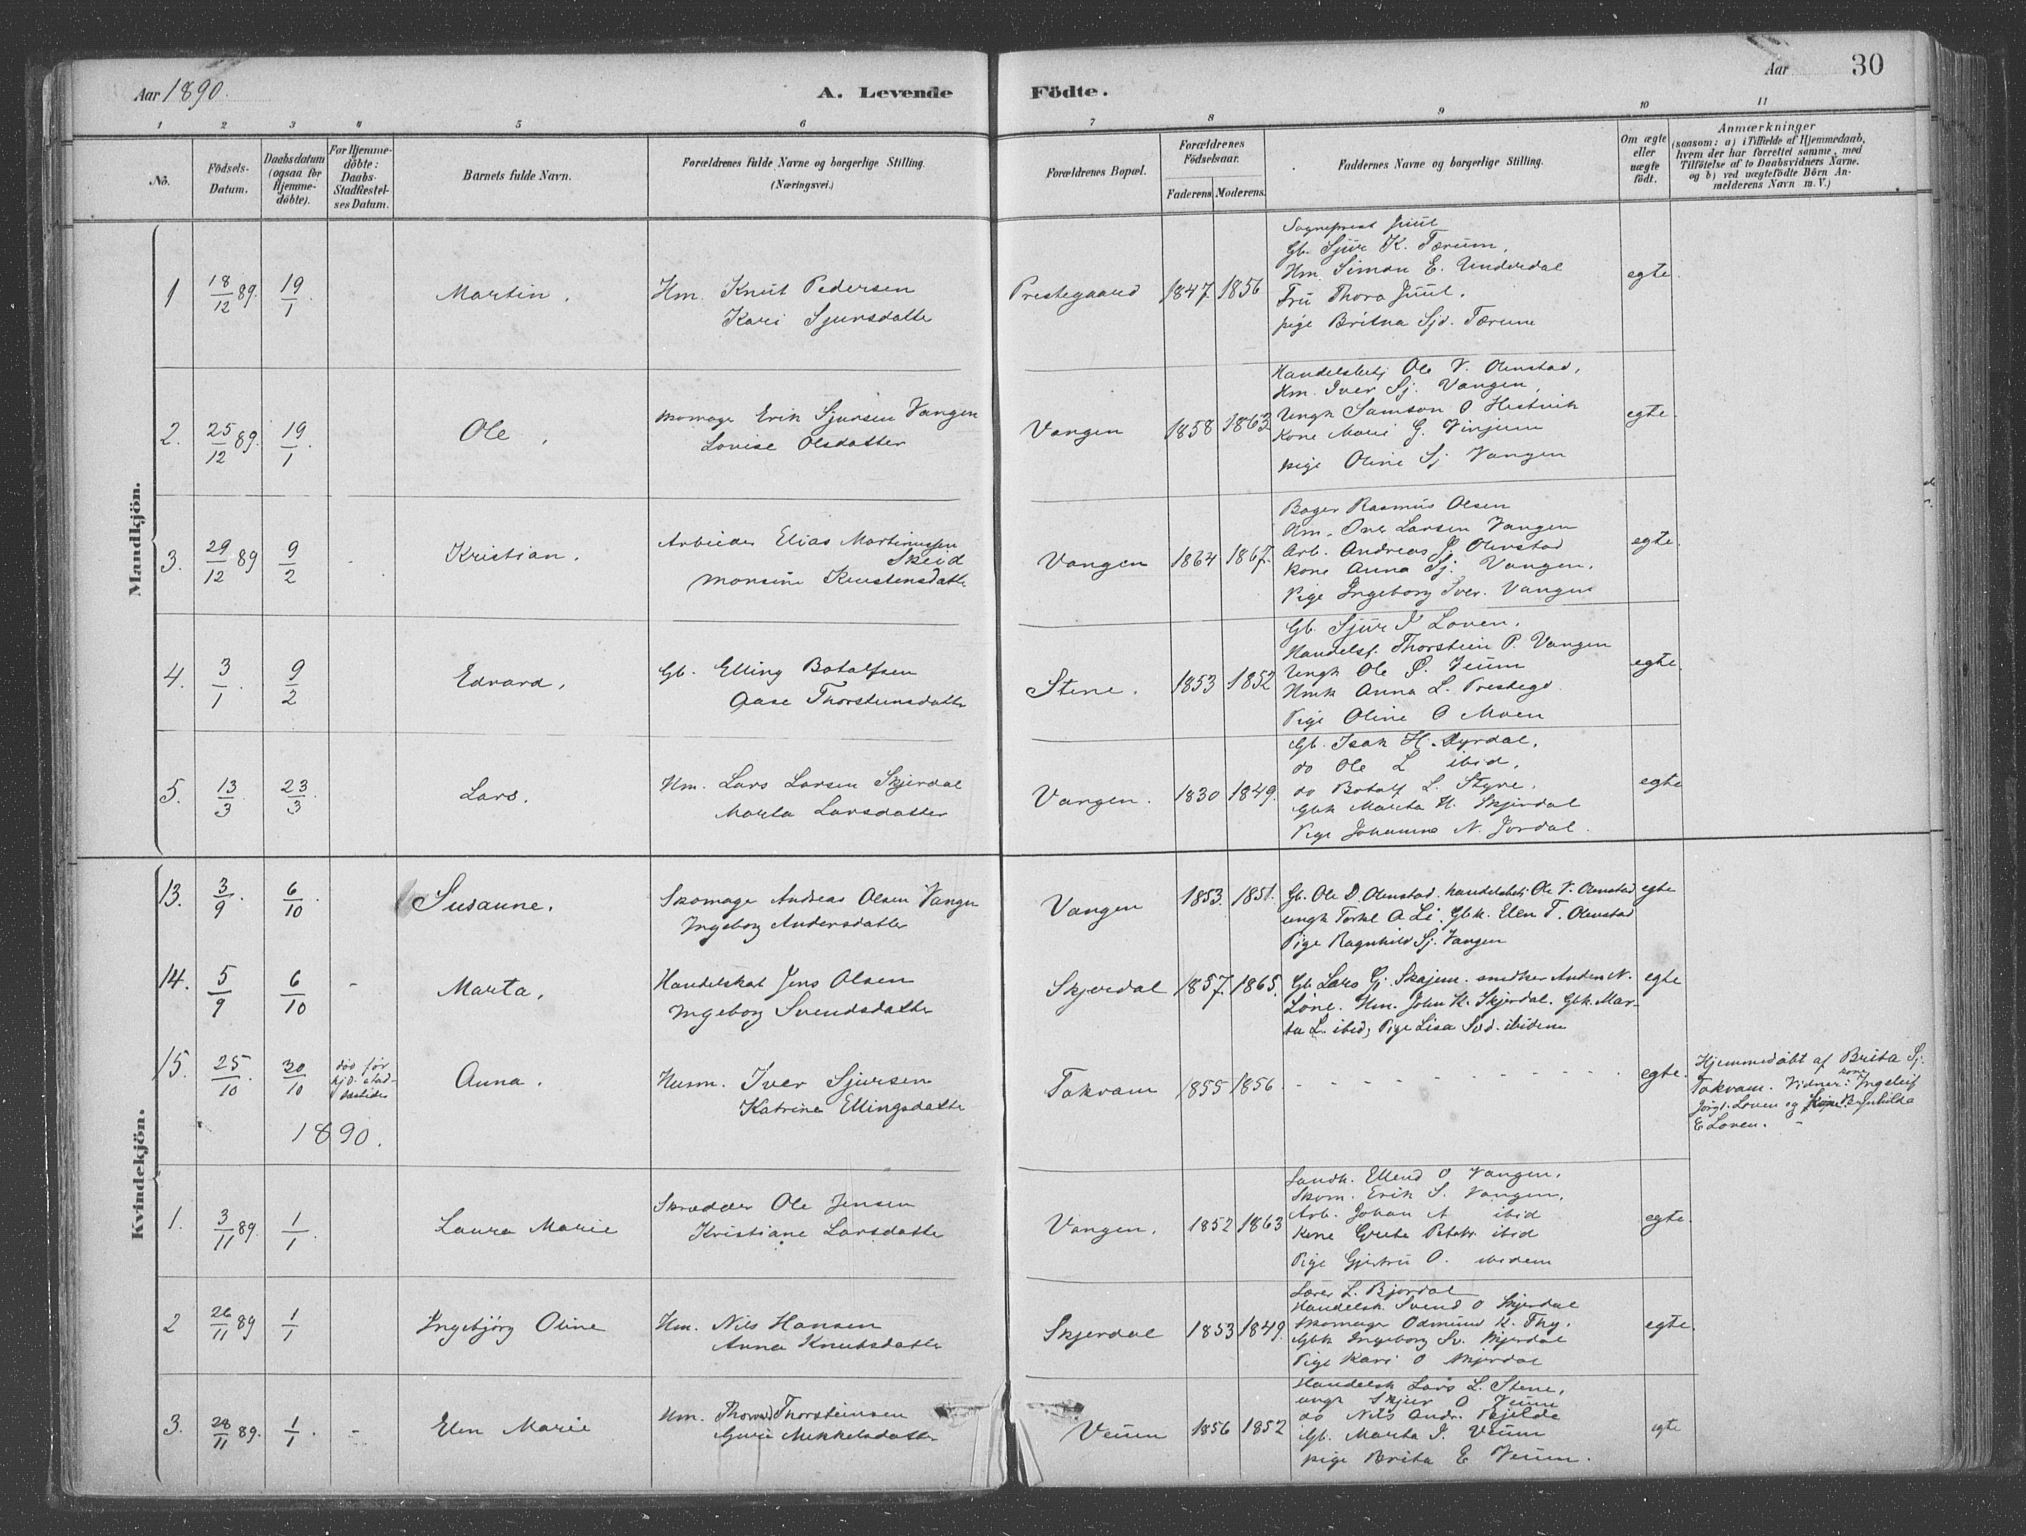 Aar 1890.
A. Levende Födte.
Aar 30
1 2 3 4 5 6 7 8 9 10 11
No.
Födsels-Datum.
Daabsdatum (ogsaa for Hjemme-döbte).
For Hjemme-döbte: Daabs-Stadfæstel-ses Datum.
Barnets fulde Navn.
Forældrenes fulde Navne og borgerlige Stilling. (Næringsvei.)
Forældrenes Bopæl.
Forældrenes Födselsaar.
Faderens. Moderens.
Faddernes Navne og borgerlige Stilling.
Om ægte eller uægte födt.
Anmærkninger
(saasom: a) i Tilfælde af Hjemmedaab, hvem der har forrettet samme, med Tilföielse af to Daabsvidners Navne. og b) ved uægtefödte Börn An-melderens Navn m.V.)
Mandkjön.
1 18/12 89. 19/1. Martin. Hm. Knut Pedersen
Kari Sjursdatter
Prestegaard 1847. 1856
Sognepræst Juul
Gb. Sjur K. Tærum.
Hm. Simon E. Underdal
Fru Thora Juul.
pige Britna Sjd. Tærum
egte.
2. 25/12 89. 19/1. Ole, Skomage Erik Sjursen Vangen
Lovise Olsdatter
Vangen 1858 1863
Handelsbetj Ole V. Ohnstad,
Hm. Iver Sj. Vangen,
Ungk Samson O
Kone Mari G. Vinjum
pige Oline Sj Vangen
egte.
3. 29/12 89 9/2 Kristian. Arbeider Elias Martinussen
Skeid
Monsine Kristensdatter
Vangen 1864 1867.
Bager Rasmus Olsen
Hm. Iver Larsen Vangen
Arb. Andreas J. Ohnstad
Kone Anna Sj. Vangen.
Pige Ingeborg Iver. Vangen
egte.
4. 3/1. 9/2 Edvard. Gb. Elling Botolfsen
Aase Thorsteinsdatter
Stene. 1853 1852
Gb. Sjur I Loven.
Handelsf. Thorstein P. Vangen
Ungk Ole Veum
Hmk Anna L. Prestegd.
Pige Oline O Moen
egte.
5. 13/3 23/3. Lars. Hm. Lars Larsen Skjerdal
Marta Larsdatter
Vangen. 1830 1849.
Gb. Isak H. Dyrdal.
do Ole L ibid.
do Botolf L. Styve.
Gbk Marta H. Skjerdal
Pige Johanna N. Jordal.
egte
Kvindekjön.
13. 3/9 6/10. Susanne. Skomage Andreas Olsen Vangen
Ingeborg Andersdatter
Vangen 1853. 1851.
Gb. Ole D. Ohnstad, handelsbetj Ole V. Ohnstad
ungk Torkel A Li, Gbk. Elen T. Ohnstad
Pige Ragnhild Sj. Vangen
egte
14. 5/9 6/10 - Marta. Handelskar Jens Olsen
Ingeborg Svendsdatter
Skjerdal 1857. 1865.
Gb Lars Gj. Skajem. snedker Anders N.
Lone. Hm. John K. Skjerdal. Gbk. Mar-
ta L. ibid, Pige Lisa Svd. ibidem
egte
15. 25/10. 30/10 død før
hj.d. stad-
fæstedes
Anna. Husm. Iver Sjursen
Katrine Ellingsdatter
Tokvam 1855 1856 - - - - - - - -
egte.
Hjemmedøbt af Brita Sj.
Tokvam. Vidner: kone Ingeleif
Jørgt. Loven og Brynhilda
E Loven.
1890.
1. 3/11 89. 1/1. Laura Marie Skrædder Ole Jensen
Kristiane Larsdatter
Vangen. 1852 1863
Landh. Ellend O Vangen.
Skom. Erik S. Vangen.
Arb. Johan A ibid
Kone Grete Petdtr. ibid
Pige Gjertru O. ibidem
egte.
2 26/11 89 1/1 Ingebjørg Oline Hm. Nils Hansen
Anna Knutsdatter
Skjerdal 1853 1849.
Lærer L. Bjørdal
Handelsk Svend O Skjerdal
Skomage Odmund K. Thy.
Gbk Ingeborg Sv. Skjerdal
Pige Kari O Skjerdal
egte.
3. 28/11 89. 1/1. - Elen Marie Hm. Thorstensen
Guri Mikkelsdatter
Veum 1856 1852
Handelsk Lars L. Stene.
ungk Skjur O Veum
do Nils Andr. Fjelde
Gb. Marta I. Veum
pige Brita E Veum.
egte